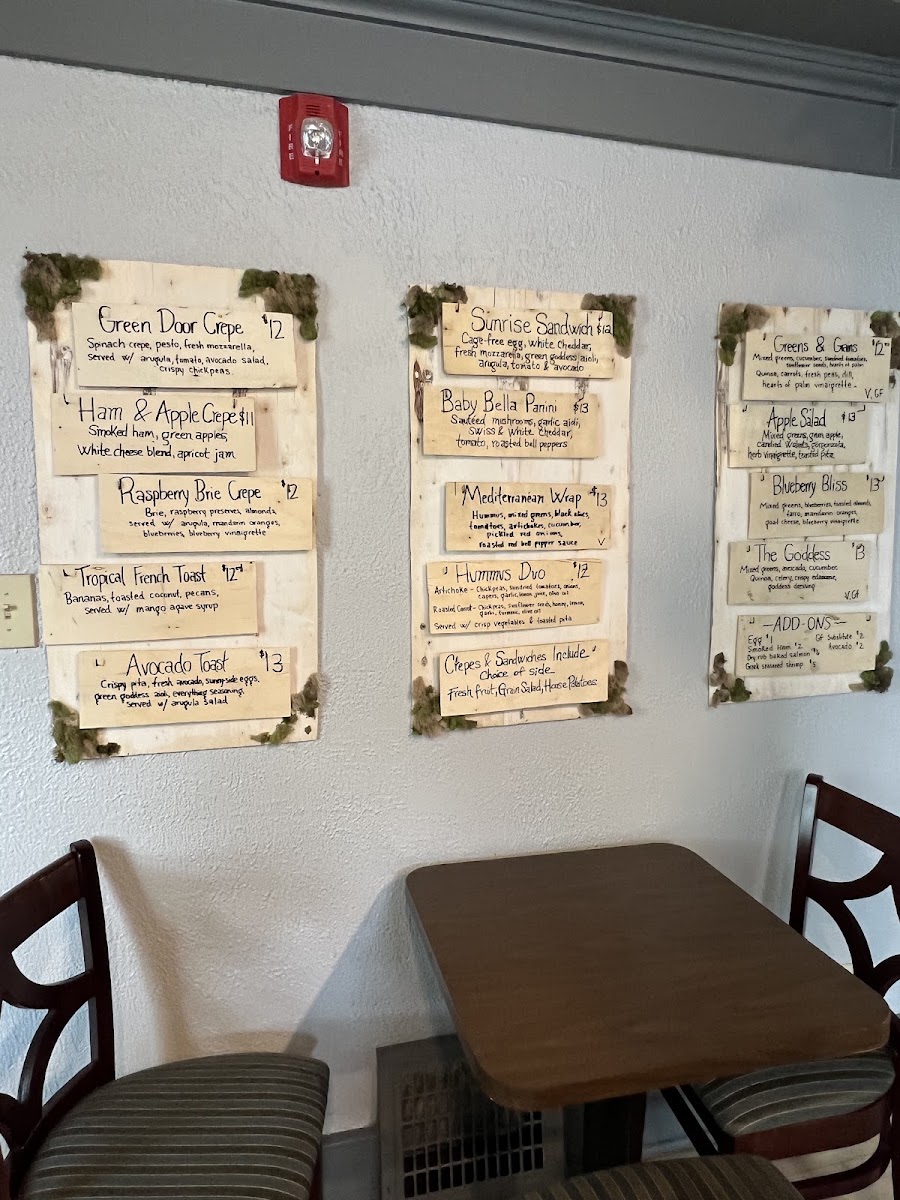 FIRE
FIRE
Green Door Crepe $12
Spinach crepe, pesto, fresh mozzarella,
served w/ arugula, tomato, avocado salad,
crispy chickpeas
Ham & Apple Crepe $11
Smoked ham, green apples,
white cheese blend, apricot jam
Raspberry Brie Crepe $12
Brie, raspberry preserves, almonds,
served w/ arugula, mandarin oranges,
blueberries, blueberry vinaigrette
Tropical French Toast $12
Bananas, toasted coconut, pecans,
served w/ mango agave syrup
Avocado Toast $13
Crispy pita, fresh avocado, sunny-side eggs,
green goddess aioli, everything seasoning,
served w/ arugula salad
Sunrise Sandwich $12
Cage-free egg, white Cheddar,
fresh mozzarella, green goddess aioli,
arugula, tomato & avocado
Baby Bella Panini $13
Sautéed mushrooms, garlic aioli,
Swiss & White Cheddar,
tomato, roasted bell peppers
Mediterranean Wrap $13
Hummus, mixed greens, black olives,
tomatoes, artichokes, cucumber,
pickled red onions,
roasted red bell pepper sauce V
Hummus Duo $12
Artichoke - Chickpeas, sundried tomatoes, onions,
capers, garlic, lemon juice, olive oil
Roasted Carrot - Chickpeas, sunflower seeds, honey, lemon,
garlic, turmeric, olive oil
Served w/ crisp vegetables & toasted pita
Crepes & Sandwiches Include
Choice of side
Fresh fruit, Grain Salad, House Potatoes
Greens & Grains $12
Mixed greens, cucumber, sundried tomatoes,
sunflower seeds, hearts of palm
Quinoa, carrots, fresh peas, dill,
hearts of palm vinaigrette V, GF
Apple Salad $13
Mixed greens, green apple,
candied walnuts, gorgonzola,
herb vinaigrette, toasted pita
Blueberry Bliss $13
Mixed greens, blueberries, toasted almonds,
farro, mandarin oranges,
goat cheese, blueberry vinaigrette
The Goddess $13
Mixed greens, avocado, cucumber,
Quinoa, celery, crispy edamame,
goddess dressing
V, GF
-ADD-ONS-
Egg $1 GF Substitute $2
Smoked Ham $2 Avocado $2
Dry rub baked salmon $5
Greek seasoned shrimp $5